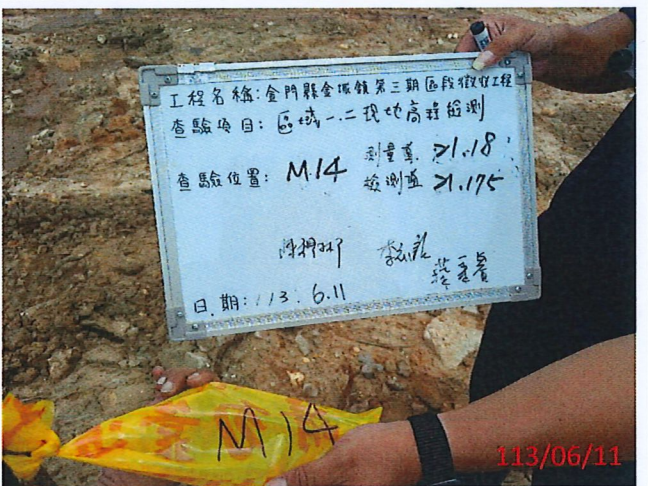 工程名稱:金門縣金城鎮第三期區段徵收工程
查驗項目:區域一.二現地高程檢測
測量值 21.18
查驗位置: M14 檢測值 21.175
日期:113.6.11
M14
113/06/11